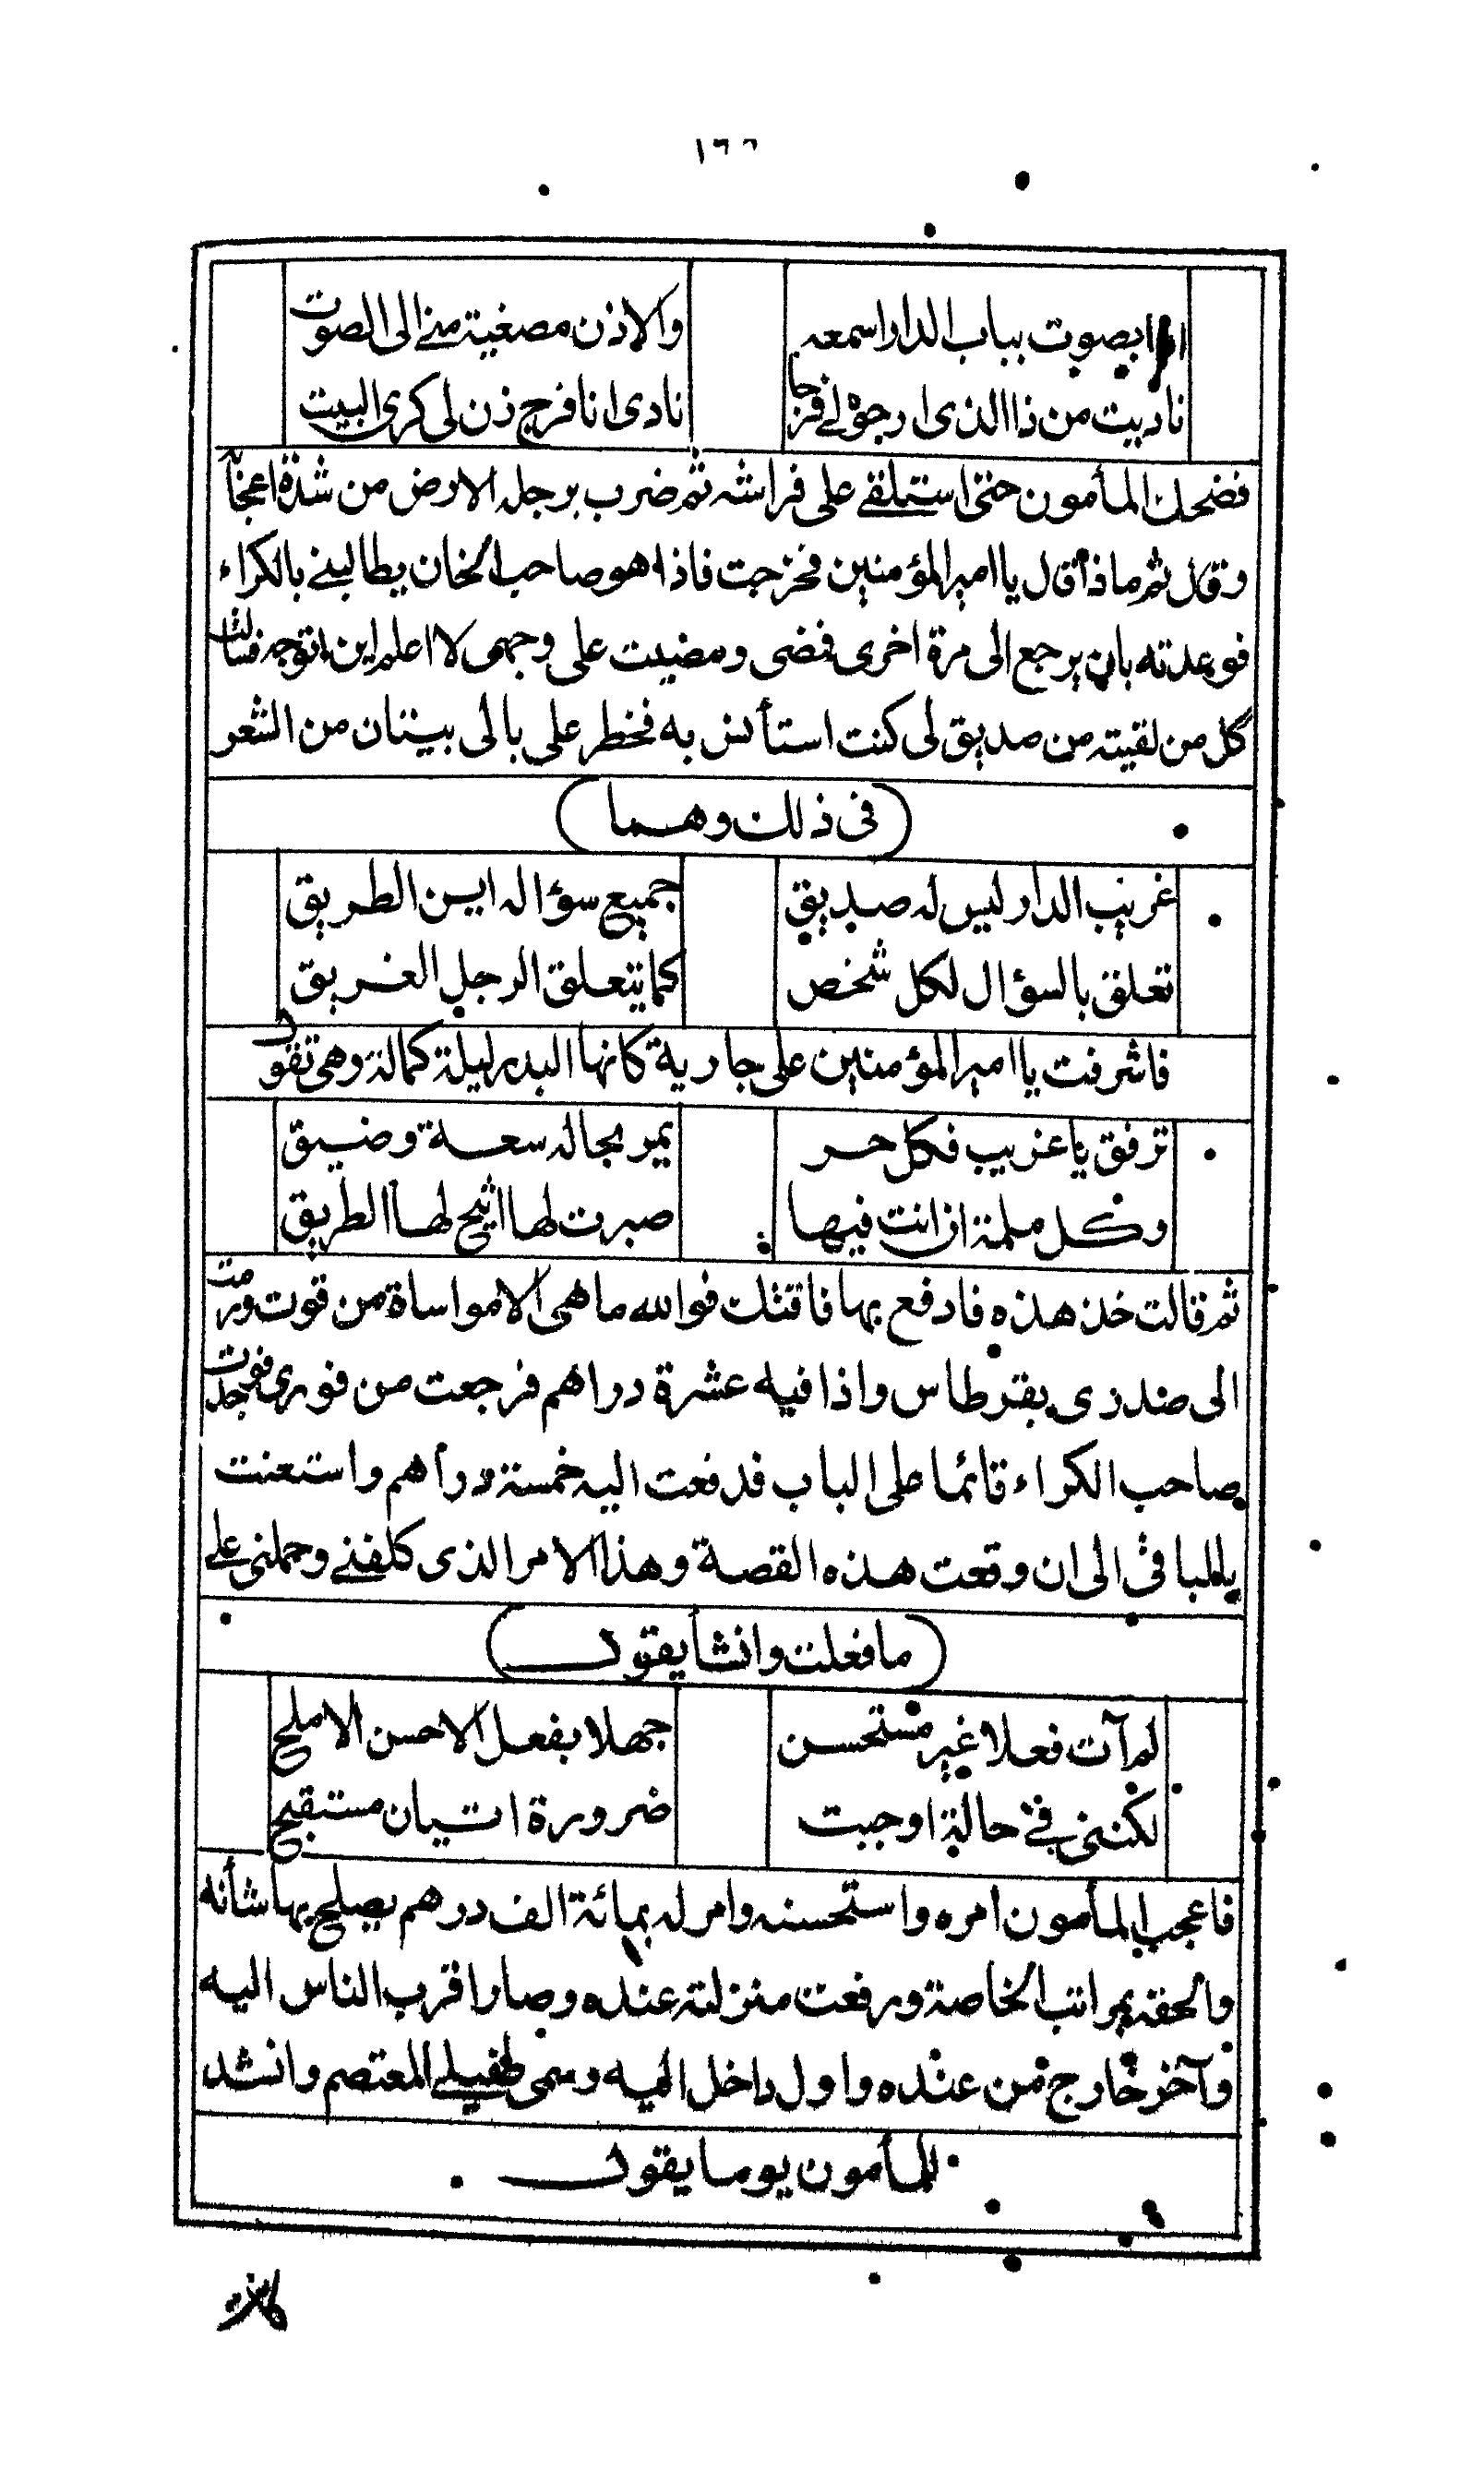 اذا بصوت بباب الدار اسمعه والاذن مصغية مني الى الصوت
ناديت من ذا الذى ارجوه لى فرجا نادى انا فرج زن لى كرى البيت
فضحك المأمون حتى استلقى على فراشه ثم ضرب برجله الارض من شدة اعجابا
وقال ثم ماذا قال يا امير المؤمنين فخرجت فاذا هو صاحب الخان يطالبنى بالكراء
فوعدته بان يرجع الى مرة اخرى فمضى ومضيت على وجهى لا اعلم اين اتوجه فسألت
كل من لقيته من صديق لى كنت استأنس به فخطر على بالى بيتان من الشعر
(فى ذلك وهما)
غريب الدار ليس له صديق جميع سؤاله اين الطريق
تعلق بالسؤال لكل شخص كما يتعلق الرجل الغريق
فاشرفت يا امير المؤمنين على جارية كانها البدر ليلة كماله وهى تقول
ترفق يا غريب فكل حر يمر بحاله سعة وضيق
وكل ملمة ان انت فيها صبرت لها اتيح لها الطريق
ثم قالت خذ هذه فادفع بها فاقتك فوالله ما هى الا مواساة من قوت ورمت
الى صدرى بقرطاس واذا فيه عشرة دراهم فرجعت من فورى فوجدت
صاحب الكراء قائما على الباب فدفعت اليه خمسة دراهم واستعنت
بالباقى الى ان وقعت هذه القصة وهذا الامر الذى كلفنى وحملنى على
(ما فعلت وانشأ يقول)
لم آت فعلا غير مستحسن جهلا بفعل الاحسن الاملح
لكننى فى حالة اوجبت ضرورة اتيان مستقبح
فاعجب المأمون امره واستحسنه وامر له بمائة الف درهم يصلح بها شأنه
والحقه بمراتب الخاصة ورفعت منزلته عنده وصار اقرب الناس اليه
وآخر خارج من عنده واول داخل اليه وسمى طفيلى المعتصم وانشد
للمأمون يوما يقول